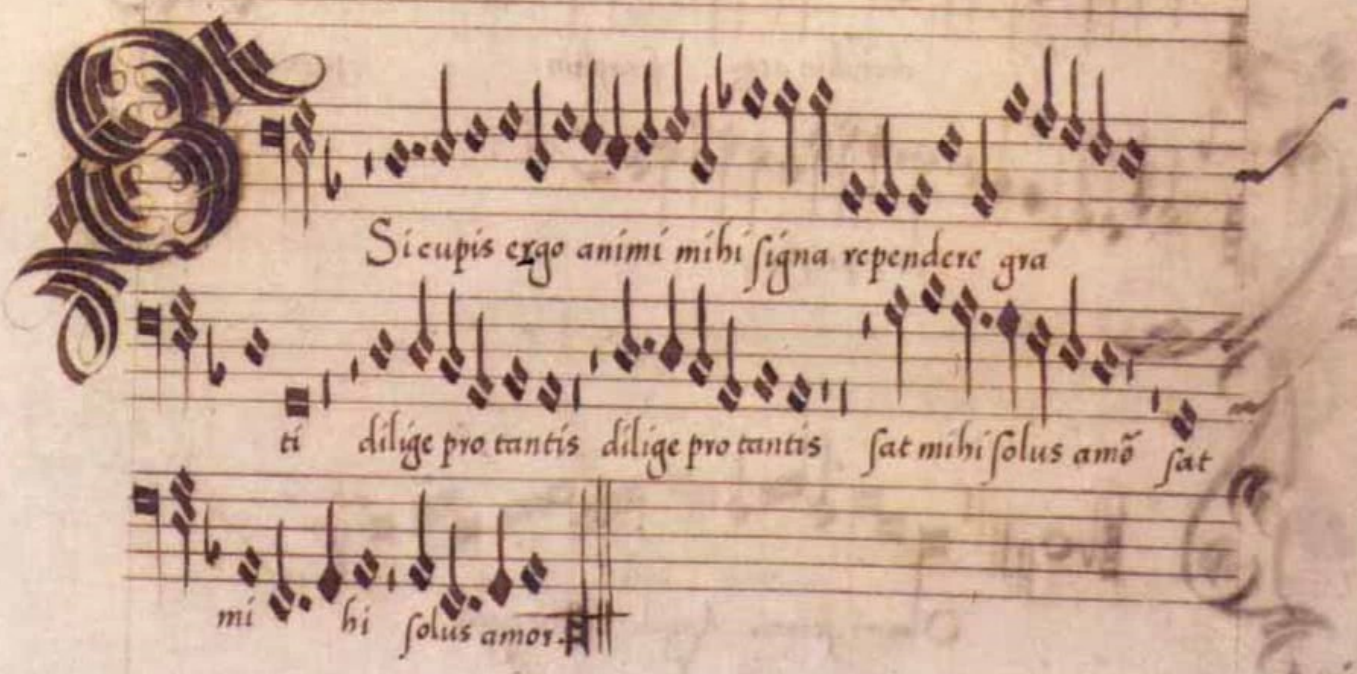 Si cupis ergo animi mihi signa rependere gra
ti dilige pro tantis dilige pro tantis sat mihi solus amõ sat
mi hi solus amor.